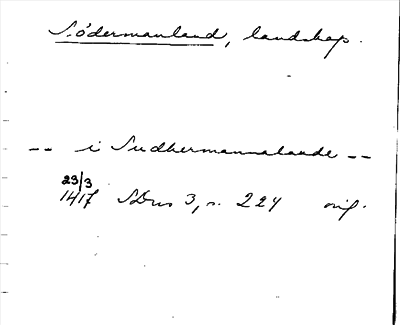 Södermanland, landskap.
-- i Sudhermannalande --
23/3
1417 SDns 3, s. 224 orig.